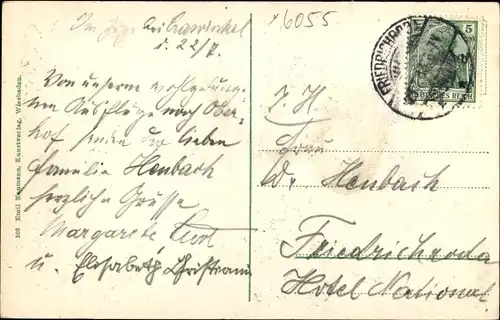 Im Zuge bei Crawinkel
d. 22/7.
Von unserem wohlgelunge-
nen Ausfluge nach Ober-
hof senden der lieben
Familie Heubach
herzliche Grüsse
Margarete Kurt
u. Elisabeth Christiann
102 Emil Neumann, Kunstverlag, Wiesbaden.
6055
FRIEDRICHRODA
5
DEUTSCHES REICH
Frau
Dr. Heubach
Friedrichroda
Hotel National